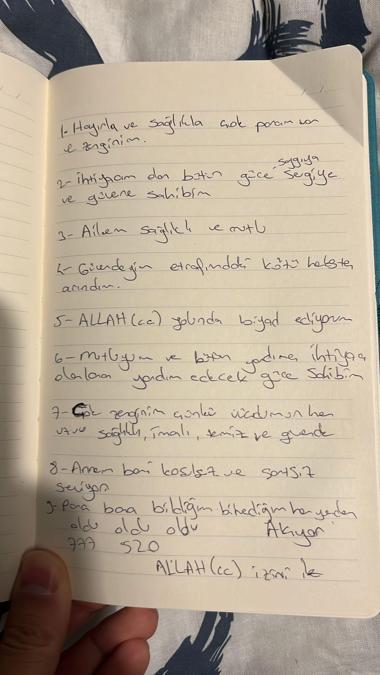 1- Hayırla ve sağlıkla çok param var
ve zenginim.
saygıya
2- ihtiyacım olan bütün güce sevgiye
ve güvene sahibim
3- Ailem sağlıklı ve mutlu
4- Güvendeyim etrafımdaki kötü herkesten
arındım.
5- ALLAH (cc) yolunda ediyorum
6- mutluyum ve bütün yardıma ihtiyacı
olanlara yardım edecek güce sahibim
7- Çok zenginim çünkü vücudumun her
uzvu sağlıklı, temiz ve güvende
8- Annem beni koşulsuz ve şartsız
seviyor
9- Para bana bildiğim bilmediğim her yerden
oldu oldu oldu Akıyor
777 520
ALLAH (cc) izni ile